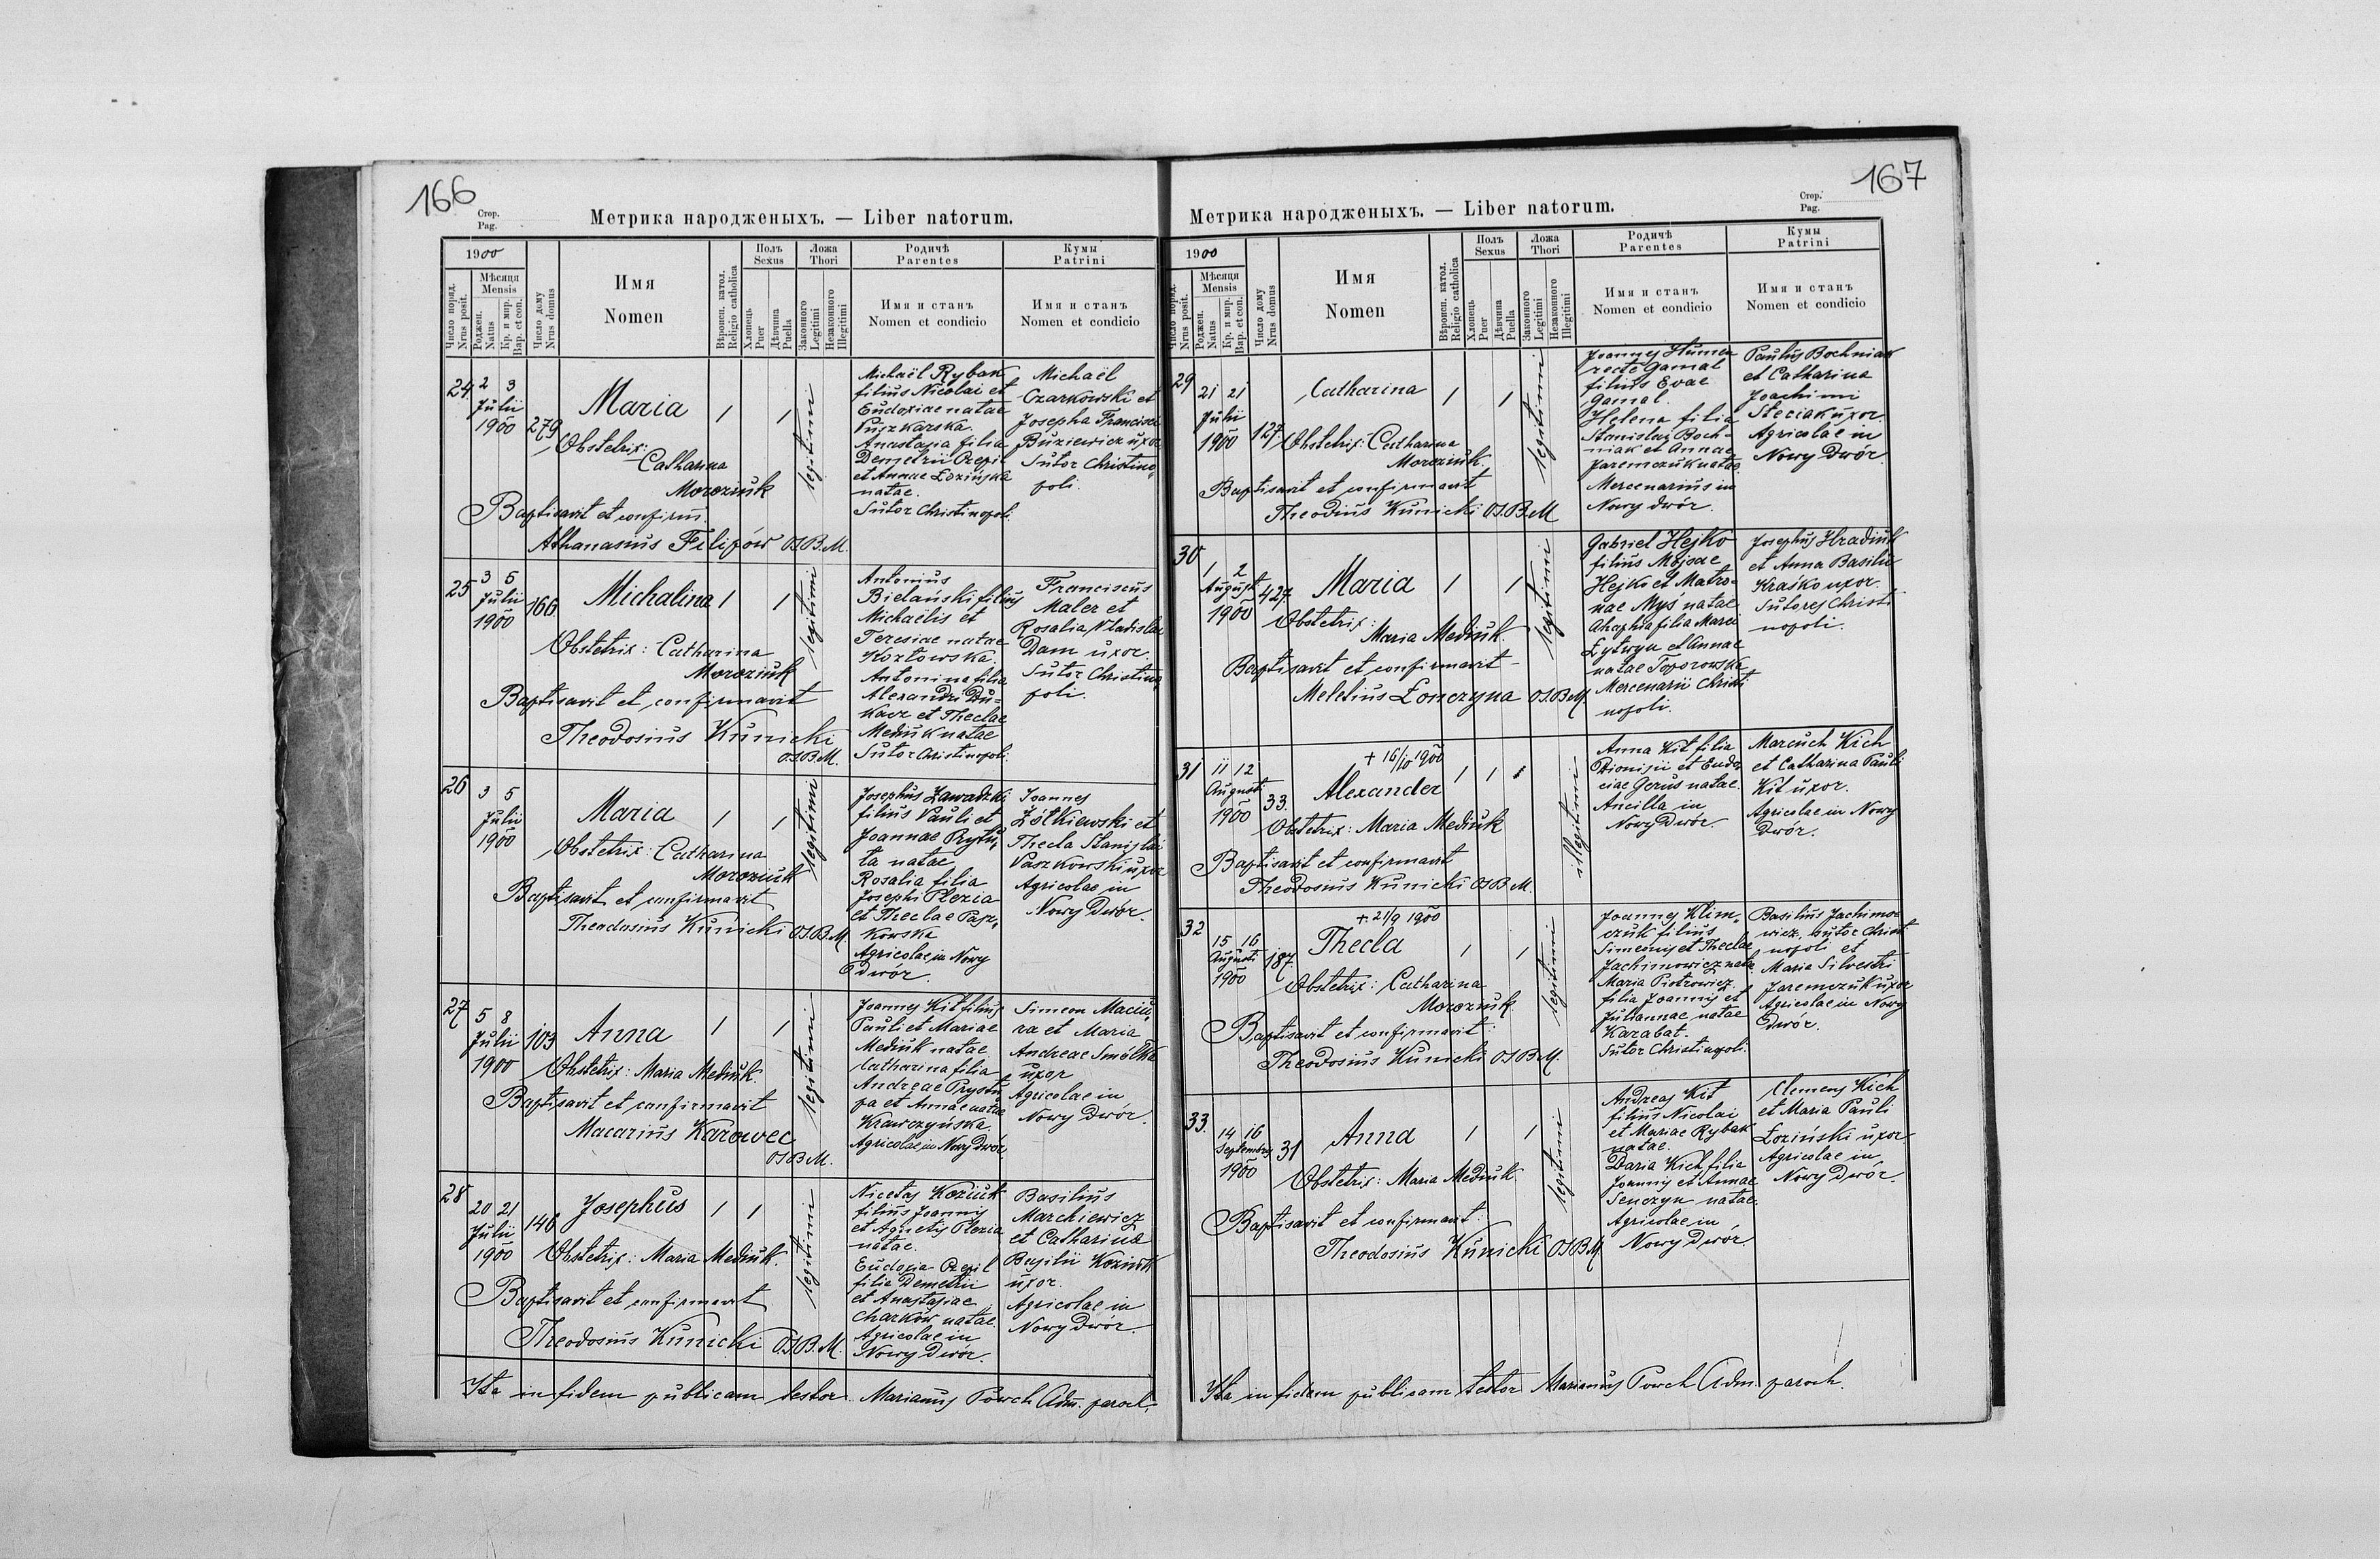 166
Стор.
Pag.
Метрика народженыхъ. — Liber natorum.
1900
Число поряд.
Nrus posit.
Мѣсяця
Mensis
Роджен.
Natus
Кр. и мир.
Bap. et con.
Число дому
Nrus domus
Имя
Nomen
Вѣроисп. катол.
Religio catholica
Полъ
Sexus
Хлопець
Puer
Дѣвчина
Puella
Ложа
Thori
Законного
Legitimi
Незаконного
Illegitimi
Родичѣ
Parentes
Имя и станъ
Nomen et condicio
Кумы
Patrini
Имя и станъ
Nomen et condicio
24
2 3
Julii
1900
279
Maria
Obstetrix:
Catharina
Moroziuk
Baptisavit et confirm.
Athanasius Filipów OSB.M.
legitimi
Michaël Rybak
filius Nicolai et
Eudoxiae natae
Puszkarska.
Anastasia filia
Demetrii
et Annae Łozińska
natae.
Sutor Christinopoli.
Michaël
Czarkowski et
Josepha Francisci
Buziewicz uxor
Sutor Christino„
poli.
25
3 5
Julii
1900
166
Michalina
Obstetrix: Catharina
Moroziuk
Baptisavit et confirmavit
Theodosius Kunicki
OSB.M.
legitimi
Antonius
Bielański filius
Michaëlis et
Teresiae natae
Kozłowska
Antonina filia
Alexandri Du=
kacz et Theclae
Mediuk natae
Sutor Christinopoli.
Franciscus
Maler et
Rosalia Vladislai
Dam uxor.
Sutor Christino„
poli.
26
3 5
Julii
1900
Maria
Obstetrix: Catharina
Moroziuk
Baptisavit et confirmavit
Theodosius Kunicki OS.B.M.
legitimi
Josephus Zawadzki
filius Pauli et
Joannae Prytu„
ła natae
Rosalia filia
Josephi Plezia
et Theclae Pasz„
kowska
Agricolae in Nowy
Dwór.
Joannes
Żółkiewski et
Thecla Stanislai
Paszkowski uxor
Agricolae in
Nowy Dwór.
27
5 8
Julii
1900
103
Anna
Obstetrix: Maria Mediuk.
Baptisavit et confirmavit
Macarius Karowec
OSBM.
legitimi
Joannes Kit filius
Pauli et Mariae
Mediuk natae
Catharina filia
Andreae Prystu„
pa et Annae natae
Krawczyńska.
Agricolae in Nowy Dwór.
Simeon Maciu„
ra et Maria
Andreae Smółka
uxor
Agricolae in
Nowy Dwór.
28
20 21
Julii
1900
146
Josephus
Obstetrix: Maria Mediuk.
Baptisavit et confirmavit
Theodosius Kunicki OSB.M.
legitimi
Nicetas Koziuk
filius Joannis
et Agnetis Plezia
natae.
Eudoxia
filia Demetrii
et Anastasiae
Charków natae.
Agricolae in
Nowy Dwór.
Basilius
Marchiewicz
et Catharina
Basilii Koziuk
uxor.
Agricolae in
Nowy Dwór.
Ita in fidem publicam testor Marianus Powch Adm. paroch.
167
Стор.
Pag.
Метрика народженыхъ. — Liber natorum.
1900
Число поряд.
Nrus posit.
Мѣсяця
Mensis
Роджен.
Natus
Кр. и мир.
Bap. et con.
Число дому
Nrus domus
Имя
Nomen
Вѣроисп. катол.
Religio catholica
Полъ
Sexus
Хлопець
Puer
Дѣвчина
Puella
Ложа
Thori
Законного
Legitimi
Незаконного
Illegitimi
Родичѣ
Parentes
Имя и станъ
Nomen et condicio
Кумы
Patrini
Имя и станъ
Nomen et condicio
29
21 21
Julii
1900
127
Catharina
Obstetrix: Catharina
Moroziuk.
Baptisavit et confirmavit
Theodius Kunicki OS.B.M
legitimi
Joannes
recte Gamal
filius Evae
Gamal.
Helena filia
Stanislai Boch=
niak et Annae
Jaremczuk natae
Mercenarius in
Nowy dwór.
Paulus Bochniak
et Catharina
Joachimi
Steciak uxor.
Agricolae in
Nowy Dwór.
30
1 2
August
1900
427
Maria
Obstetrix:
Maria Mediuk.
Baptisavit et confirmavit
Meletius Łonczyna OS.BM.
legitimi
Gabriel Hejko
filius Mojsae
Hejko et Matro=
nae Myś natae
Ahaphia filia Marci
Łytwyn et Annae
natae Toporowska
Mercenarii Christi
nopoli.
Josephus Hradiuk
et Anna Basilii
Kraśko uxor.
Sutores Christi
nopoli.
31
11 12
Augusti
1900
33.
+ 16/10 1900
Alexander
Obstetrix: Maria Mediuk
Baptisavit et confirmavit
Theodosius Kunicki OSBM.
illegitimi
Anna Kit filia
Dionisii et Eudo„
ciae Gerus natae.
Ancilla in
Nowy Dwór.
Marcuch Kich
et Catharina Pauli
Kit uxor.
Agricolae in Nowy
Dwór.
32
15 16
Augusti
1900
187.
+ 21/9 1900
Thecla
Obstetrix: Catharina
Moroziuk.
Baptisavit et confirmavit:
Theodosius Kunicki OSBM.
legitimi
Joannes Klim„
czuk filius
Simeonis et Theclae
Jachimowicz natae
Maria Piotrowicz
filia Joannis et
Juliannae natae
Karabat.
Sutor Christinopoli.
Basilius Jachimo„
wicz, sutor Christi
nopoli et
Maria Silvestri
Jaremczuk uxor
Agricolae in Nowy
Dwór.
33.
14 16
Septembris
1900
31
Anna
Obstetrix: Maria Mediuk.
Baptisavit et confirmavit:
Theodosius Kunicki OSBM.
legitimi
Andreas Kit
filius Nicolai
et Mariae Rybak
natae.
Daria Kich filia
Joannis et Annae
Senczyn natae.
Agricolae in
Nowy Dwór.
Clemens Kich
et Maria Pauli
Łoziński uxor
Agricolae in
Nowy Dwór.
Ita in fidem publicam testor Marianus Powch Adm. paroch.